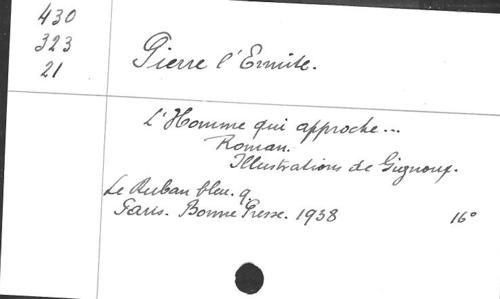 430
323
21
Pierre l'Ermite.
L'Homme qui approche...
Roman.
Illustrations de Gignoux.
Le Ruban bleu. 9.
Paris. Bonne Presse. 1938 16°